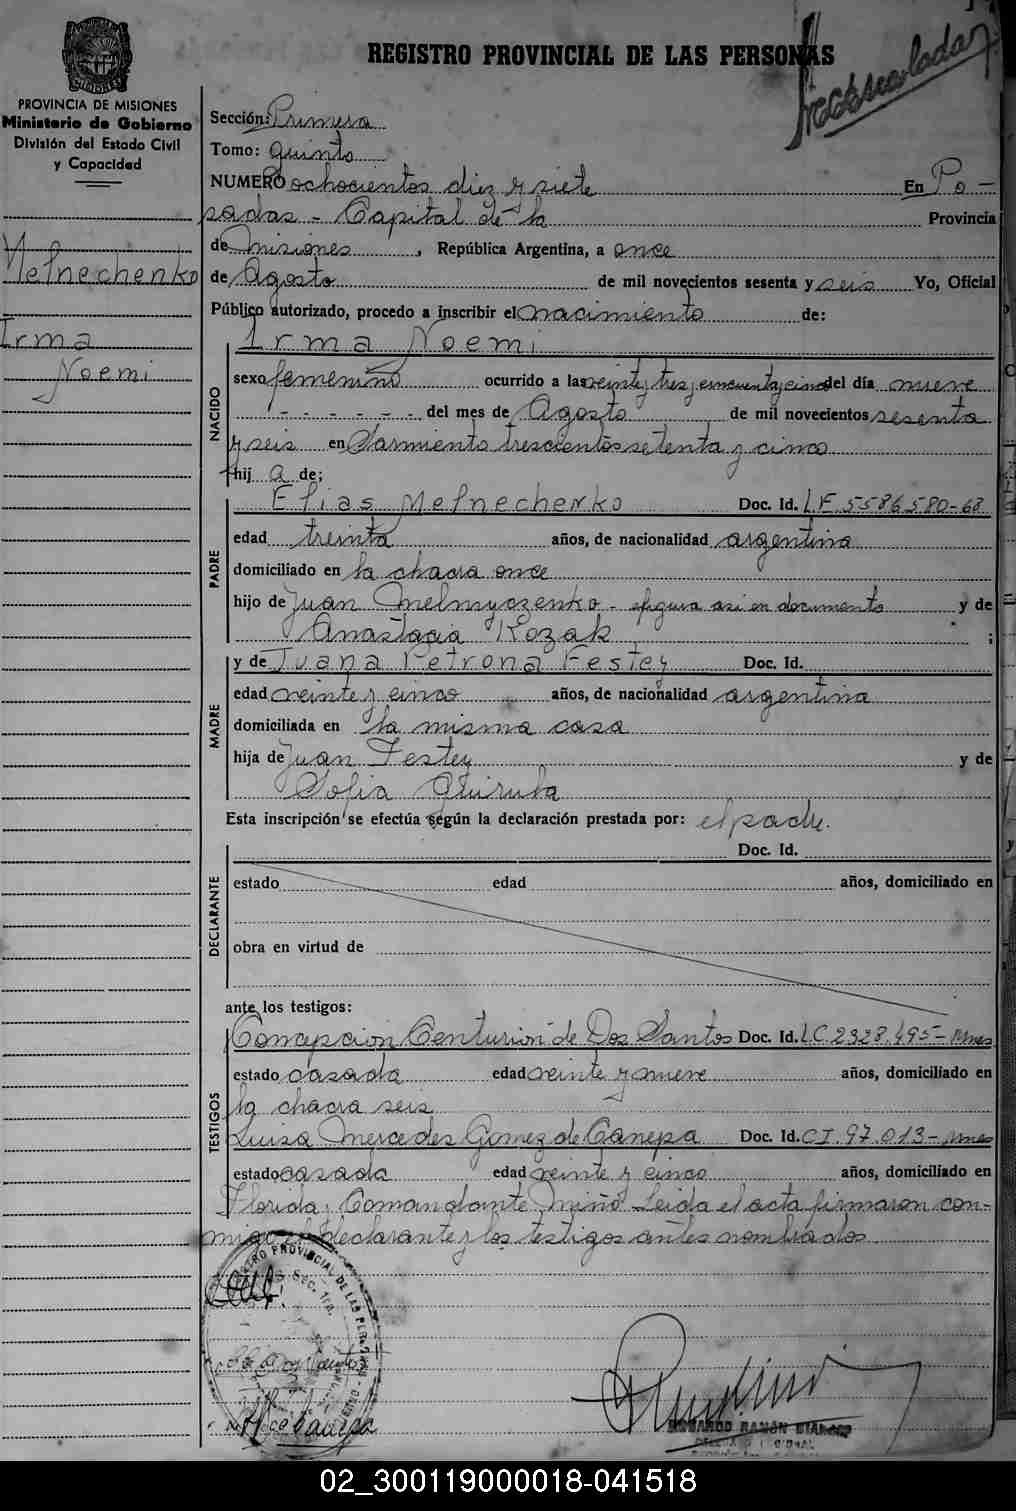 REGISTRO PROVINCIAL DE LAS PERSONAS
PROVINCIA DE MISIONES
Ministerio de Gobierno
División del Estado Civil
y Capacidad
Melnechenko
Irma
Noemi
Sección: Primera
Tomo: quinto
NUMERO ochocientos diez y siete En Po-
sadas - Capital de la Provincia
de Misiones, República Argentina, a once
de Agosto de mil novecientos sesenta y seis Yo, Oficial
Público autorizado, procedo a inscribir el nacimiento de:
NACIDO
Irma Noemi
sexo femenino ocurrido a las veinte y tres, cincuenta y cinco del día nueve
- - - - - - del mes de Agosto de mil novecientos sesenta
y seis en Sarmiento trescientos setenta y cinco
hij a de;
PADRE
Elias Melnechenko Doc. Id. L.E. 5586.580-68
edad treinta años, de nacionalidad argentina
domiciliado en la chacra once
hijo de Juan Melnyczenko - figura asi en documento y de
Anastacia Kozak ;
MADRE
y de Juana Petrona Festey Doc. Id.
edad veinte y cinco años, de nacionalidad argentina
domiciliada en la misma casa
hija de Juan Festey y de
Sofia
Esta inscripción se efectúa según la declaración prestada por: el padre.
DECLARANTE
Doc. Id.
estado edad años, domiciliado en
obra en virtud de
ante los testigos:
TESTIGOS
Concepción Centurión de Dos Santos Doc. Id. L.C. 2328.495- Mnes
estado casada edad veinte y nueve años, domiciliado en
la chacra seis
Luisa Mercedes Gomez de Canepa Doc. Id. C.I. 97.013- Mnes
estado casada edad veinte y cinco años, domiciliado en
Florida, Comandante Miño - Leida el acta firmaron con-
migo el declarante y los testigos antes nombrados.
REGISTRO PROVINCIAL DE LAS PERSONAS
Sec. 1ra.
02_300119000018-041518